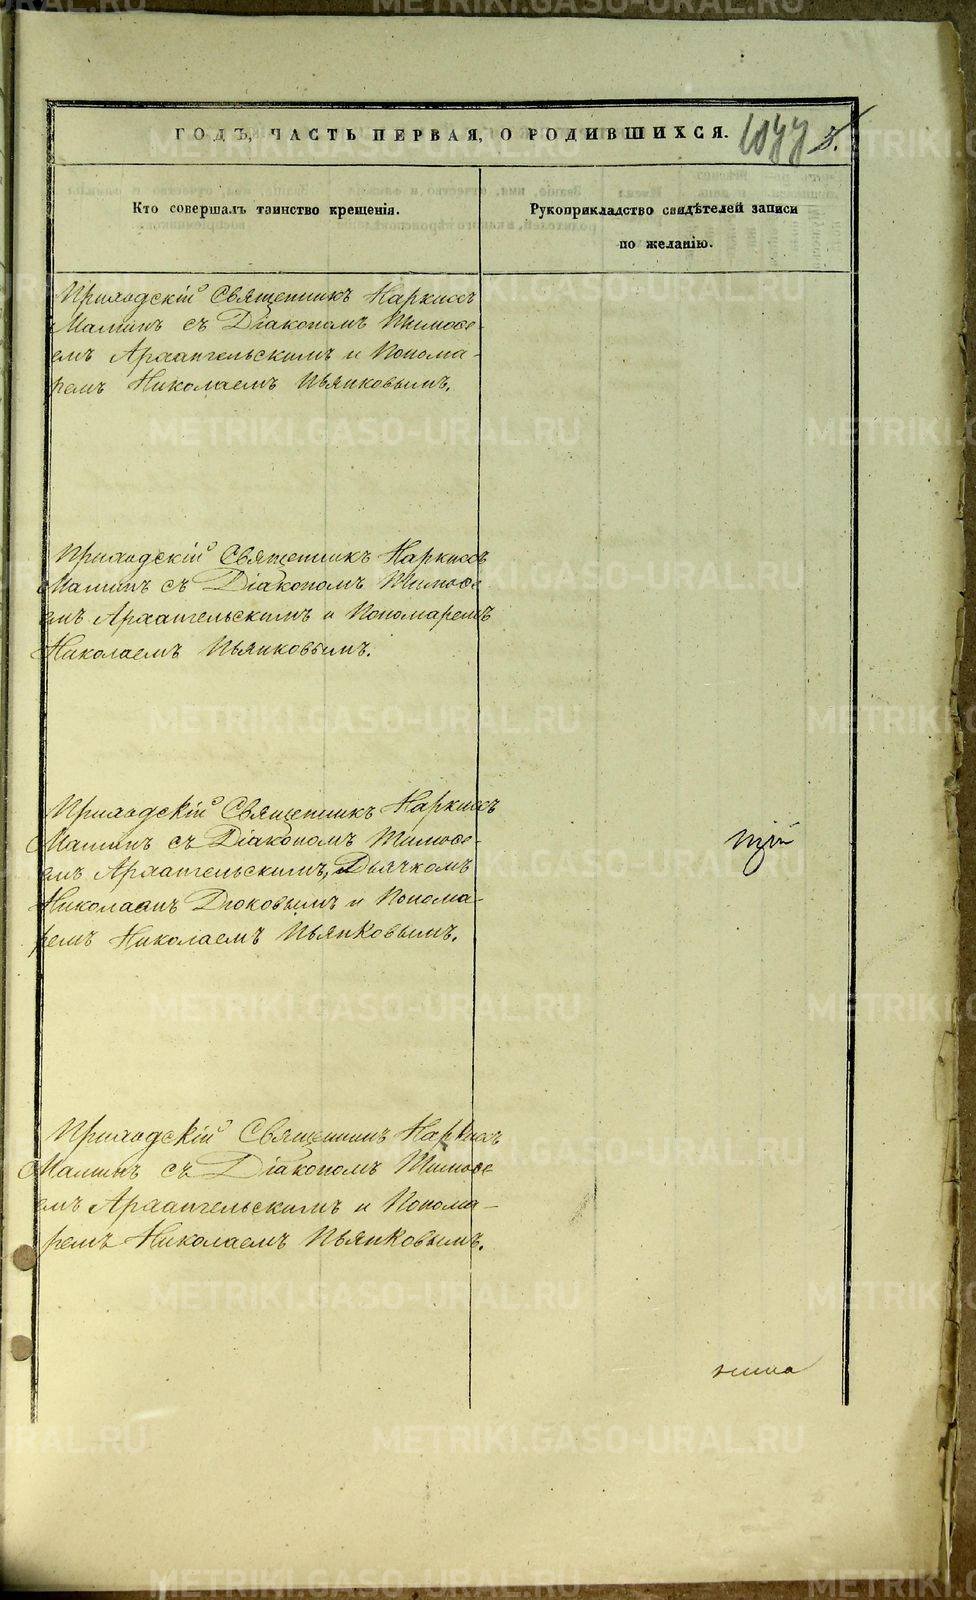 METRIKI.GASO-URAL.RU
ГОДЪ, ЧАСТЬ ПЕРВАЯ, О РОДИВШИХСЯ.
Кто совершалъ таинство крещенія.
Рукоприкладство свидѣтелей записи
по желанію.
Приходскій Священникъ Наркиссъ
Маминъ съ Діакономъ Тимоѳе-
емъ Архангельскимъ и Понома-
ремъ Николаемъ Пьянковымъ.
Приходскій Священникъ Наркиссъ
Маминъ съ Діакономъ Тимоѳе
емъ Архангельскимъ и Пономаремъ
Николаемъ Пьянковымъ.
Приходскій Священникъ Наркиссъ
Маминъ съ Діакономъ Тимоѳе-
емъ Архангельскимъ, Дьячкомъ
Николаемъ Дюковымъ и Понома-
ремъ Николаемъ Пьянковымъ.
Приходскій Священникъ Наркиссъ
Маминъ съ Діакономъ Тимоѳе
емъ Архангельскимъ и Понома-
ремъ Николаемъ Пьянковымъ.